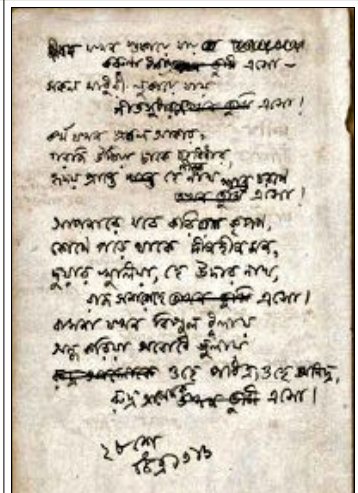 জীবন যখন শুকায়ে যায়
করুণা ধারায় এসো -
সকল মাধুরী লুকায়ে যায়
গীতসুধারসে এসো!
কর্ম যখন প্রবল আকার,
গরজি উঠিয়া ঢাকে চারিধার,
হৃদয় প্রান্তে নীরব হে নাথ শান্ত চরণে
এসো!
আপনারে যবে করিয়া কৃপণ,
কোণে পড়ে থাকে দীনহীন মন,
দুয়ার খুলিয়া, হে উদার নাথ,
রাজ সমারোহে এসো।
বাসনা যখন বিপুল ধুলায়
অন্ধ করিয়া অবোধে ভুলায়
ওহে পবিত্র, ওহে অনিদ্র,
রুদ্র আলোকে এসো।
২৮শে
চৈত্র ১৩১৬